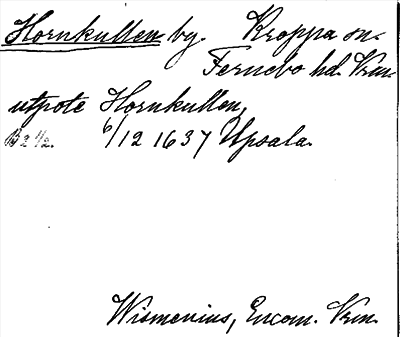 Hornkullen by. Kroppa sn.
Fernebo hd. Vrm.
utpote Hornkullen,
B 2 1/2. 6/12 1637 Upsala.
Wismenius, Encom. Vrm.